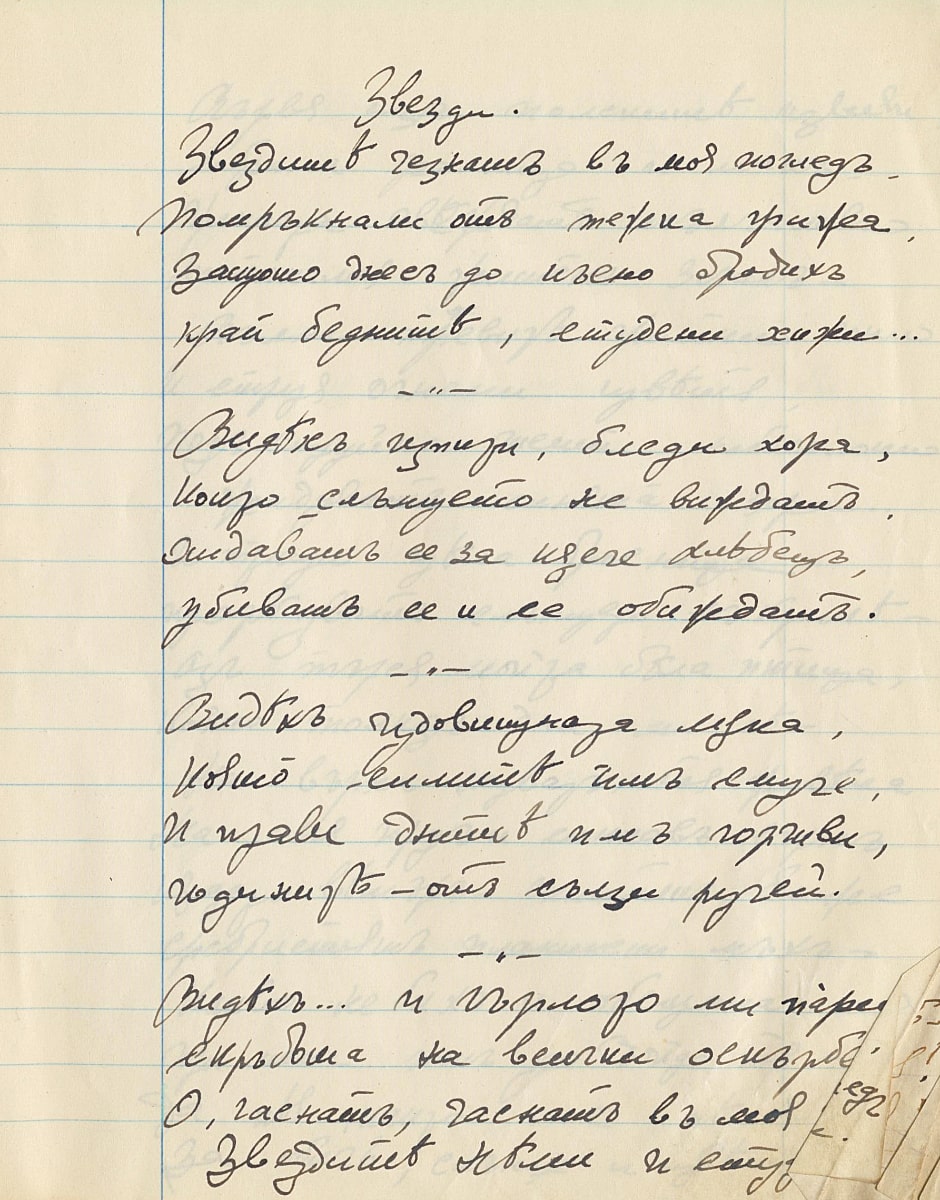 Звезди.
Звездитѣ гезнатъ въ моя погледъ
Помръкнали отъ тежка грижа,
Защото днесъ до късно бродихъ
край беднитѣ, студени хижи...
–„–
Видѣхъ изпити, бледи хора,
Които слънцето не виждатъ,
Отдаватъ се за кѫсче хлѣбецъ,
убиватъ се и се обиждатъ.
–„–
Видѣхъ чудовищната мѫка,
Която силитѣ имъ смуче,
И прави днитѣ имъ горчиви,
годинитѣ – отъ сълзи ручей.
–„–
Видѣхъ... и гърлото ми пари
скръбьта на всички оскърбе
О, гаснатъ, гаснатъ въ моя
Звездитѣ нѣми и сту